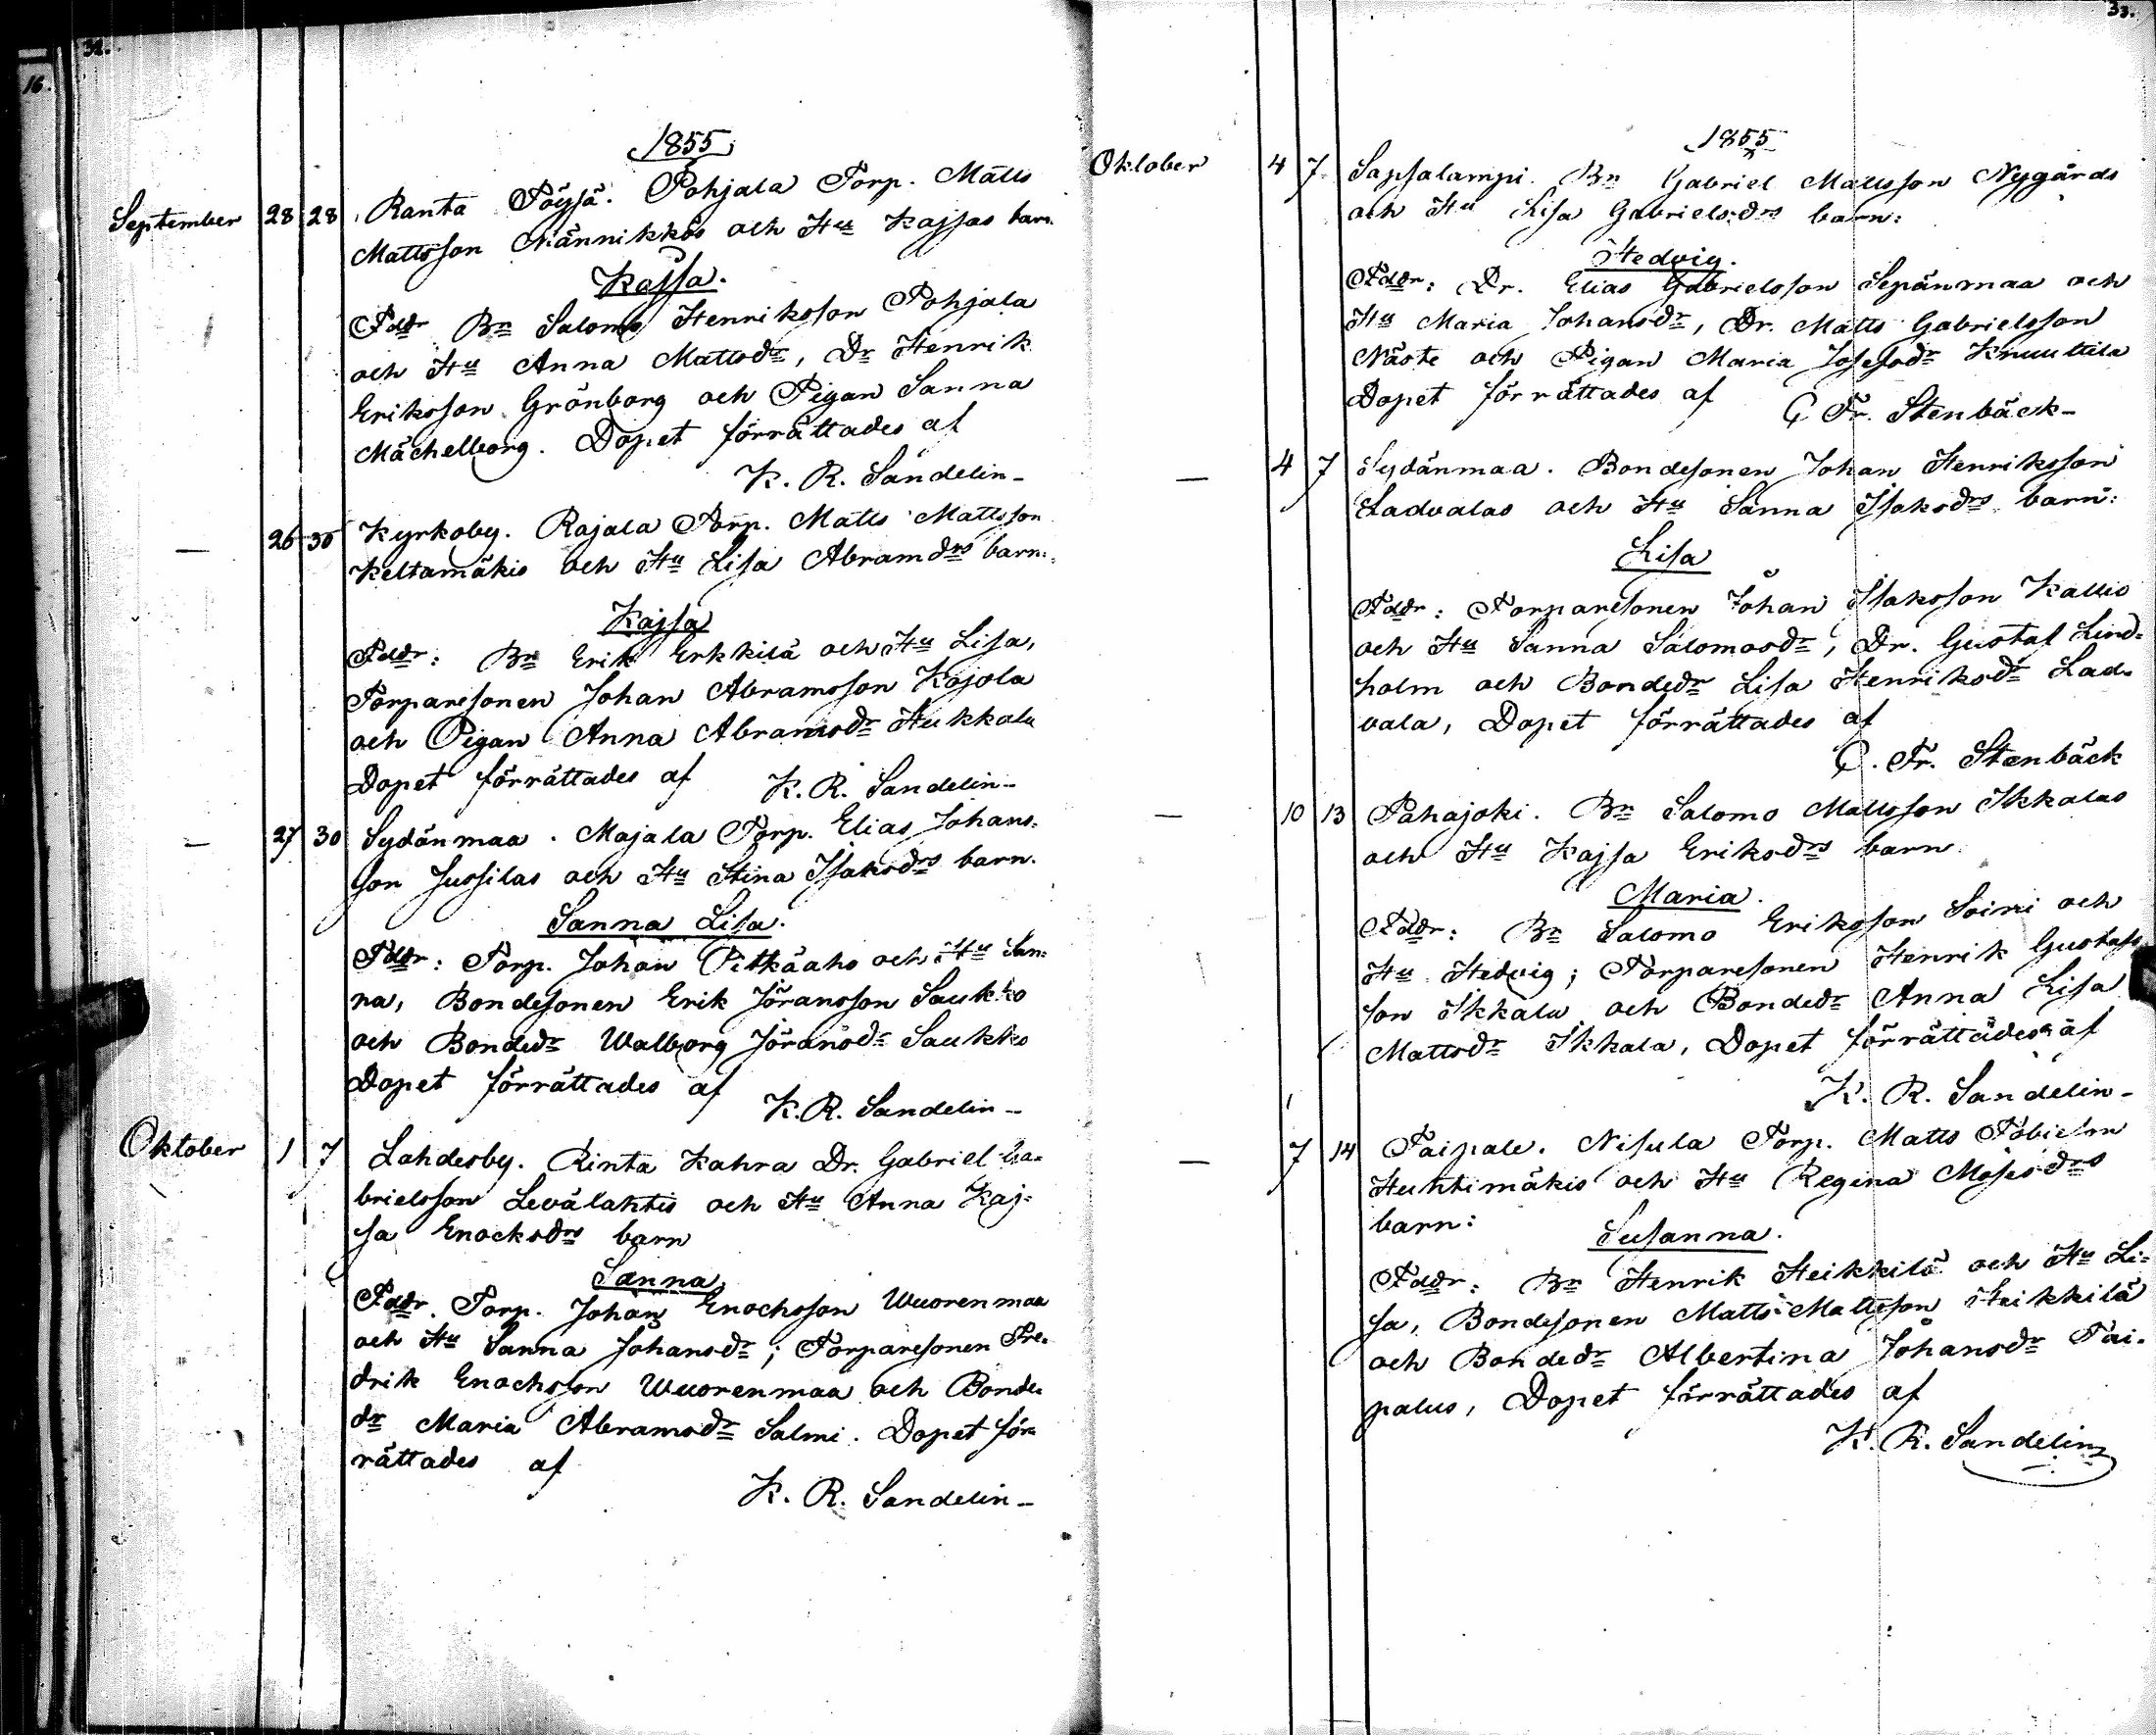 32.
16.
1855
September 28 28 Ranta Töysä. Pohjala Torp. Matts
Mattsson Männikkös och Hu Kajsas barn.
Kajsa.
Fddr Bn Salomo Henriksson Pohjala
och Hu Anna Mattsdr, Dr Henrik
Eriksson Grönborg och Pigan Sanna
Mächelborg. Dopet förrättades af
K. R. Sandelin-
— 26 30 Kyrkoby. Rajala Torp. Matts Mattsson
Keltamäkis och Hu Lisa Abramdrs barn:
Kajsa
Fddr: Bn Erik Erkkilä och Hu Lisa,
Torparesonen Johan Abramsson Kojola
och Pigan Anna Abramsdr Hukkala
Dopet förrättades af K. R. Sandelin-
— 27 30 Sydänmaa. Majala Torp. Elias Johans-
son Jussilas och Hu Stina Isaksdrs barn.
Sanna Lisa.
Fddr: Torp. Johan Pitkäaho och Hu San-
na, Bondesonen Erik Jöransson Saukko
och Bondedr Walborg Jöransdr Saukko
Dopet förrättades af
K. R. Sandelin-
Oktober 1 7 Lahdesby. Rinta Kahra Dr. Gabriel Ga-
brielsson Levälahtis och Hu Anna Kaj-
sa Enocksdrs barn
Sanna
Fddr. Torp. Johan Enochsson Wuorenmaa
och Hu Sanna Johansdr; Torparesonen Fre-
drik Enochsson Wuorenmaa och Bonde-
dr Maria Abramsdr Salmi. Dopet för-
rättades af
K. R. Sandelin-
33.
1855
Oktober 4 7 Sapsalampi. Bn Gabriel Mattsson Nygårds
och Hu Lisa Gabrielsdrs barn:
Hedvig.
Fddr: Dr. Elias Gabrielsson Sepänmaa och
Hu Maria Johansdr, Dr. Matts Gabrielsson
Näste och Pigan Maria Josefsdr Knuuttila
Dopet förrättades af C Fr. Stenbäck-
— 4 7 Sydänmaa. Bondesonen Johan Henriksson
Ladvalas och Hu Sanna Isaksdrs barn:
Lisa
Fddr: Torparesonen Johan Isaksson Kallio
och Hu Sanna Salomosdr, Dr. Gustaf Lind-
holm och Bondedr Lisa Henriksdr Lad-
vala, Dopet förrättades af
C. Fr. Stenbäck
— 10 13 Pahajoki. Bn Salomo Mattsson Ikkalas
och Hu Kajsa Eriksdrs barn
Maria.
Fddr: Bn Salomo Eriksson Soini och
Hu Hedvig; Torparesonen Henrik Gustafs
son Ikkala och Bondedr Anna Lisa
Mattsdr Ikkala, Dopet förrättades af
K. R. Sandelin-
— 7 14 Taipale. Nisula Torp. Matts Tobiesson
Huhtimäkis och Hu Regina Mosesdrs
barn:
Susanna.
Fddr: Bn Henrik Heikkilä och Hu Li-
sa, Bondesonen Matts Mattsson Heikkilä
och Bondedr Albertina Johansdr Tai-
palus, Dopet förrättades af
K. R. Sandelin